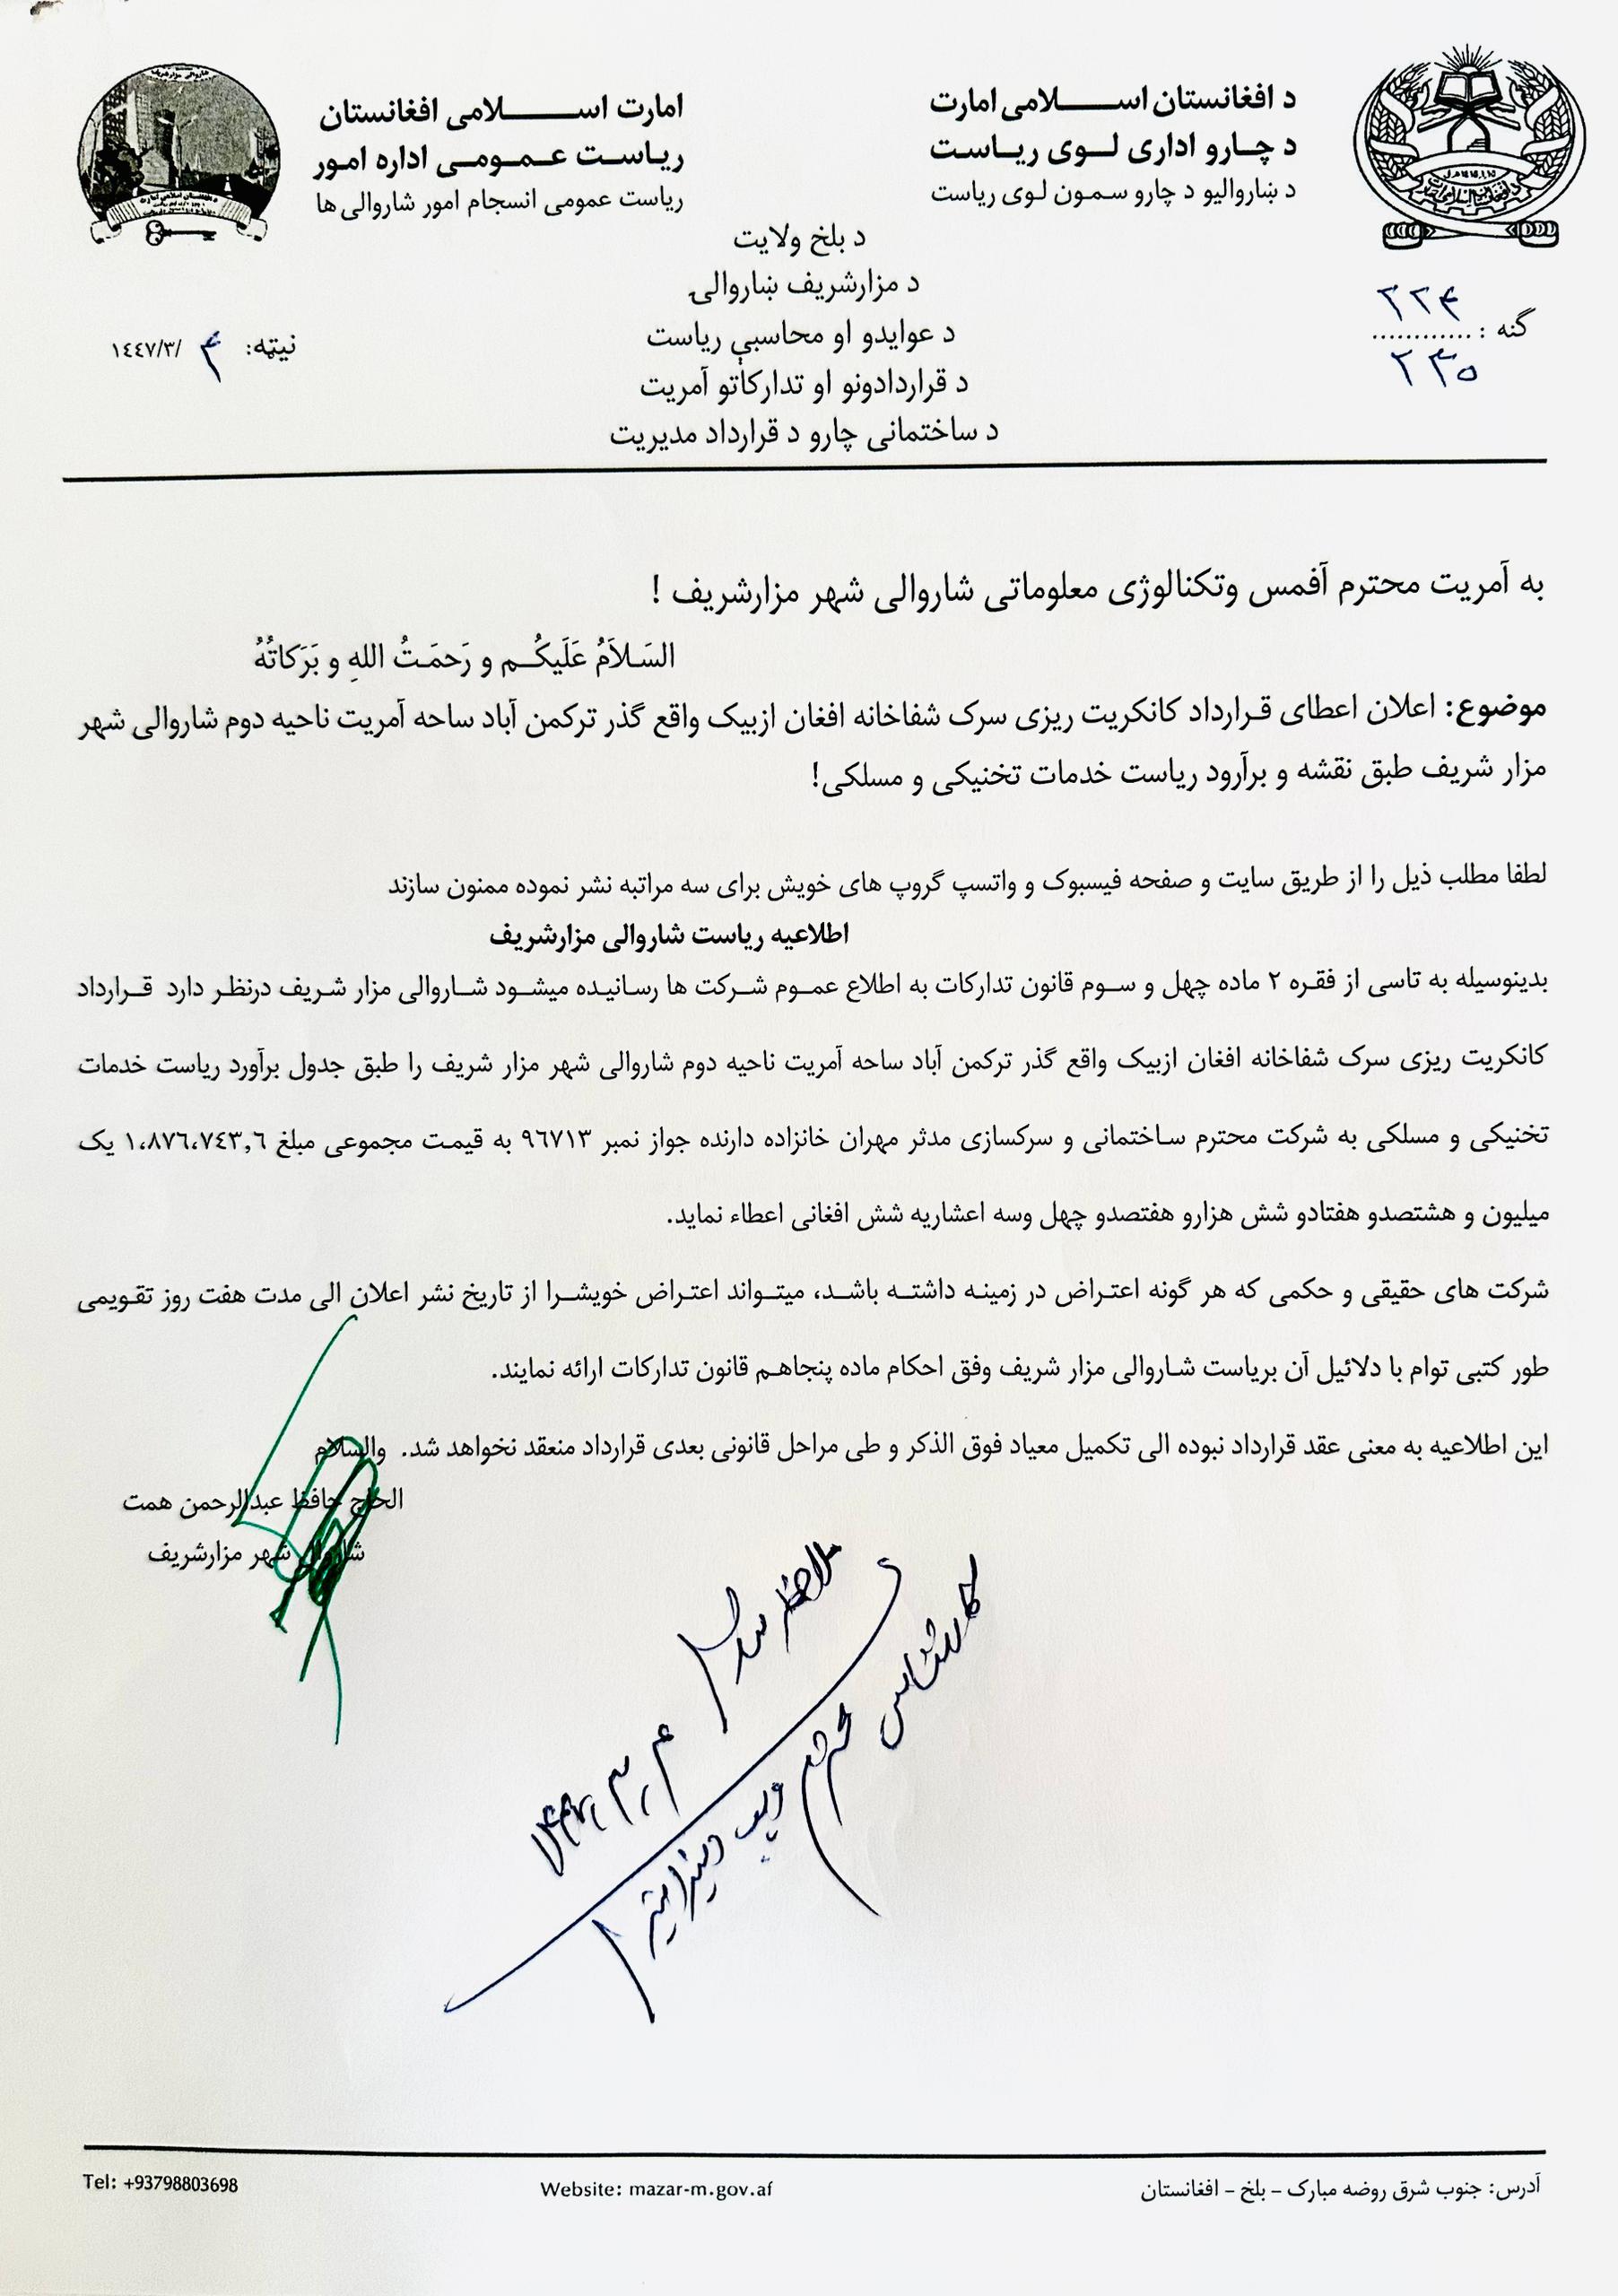 د افغانستان اســـــلامی امارت
د چــارو اداری لــوی ریــاسـت
د ښاروالیو د چارو سمـون لـوی ریاست
امارت اســـــلامی افغانستان
ریـاسـت عـمـومـی اداره امـور
ریاست عمومی انسجام امور شاروالی ها
د بلخ ولایت
د مزارشریف ښاروالۍ
د عوایدو او محاسبې ریاست
د قراردادونو او تدارکاتو آمریت
د ساختمانی چارو د قرارداد مدیریت
گڼه : ............
۲۲۴
۲۴۵
نیټه: ۴ /١٤٤٧/٣
به آمریت محترم آفمس وتکنالوژی معلوماتی شاروالی شهر مزارشریف !
السَـلاَمُ عَلَیکُــم و رَحمَـتُ اللهِ و بَرَکاتُهُ
موضوع: اعلان اعطای قـرارداد کانکریت ریزی سرک شفاخانه افغان ازبیک واقع گذر ترکمن آباد ساحه آمریت ناحیه دوم شاروالی شهر
مزار شریف طبق نقشه و برآرود ریاست خدمات تخنیکی و مسلکی!
لطفا مطلب ذیل را از طریق سایت و صفحه فیسبوک و واتسپ گروپ های خویش برای سه مراتبه نشر نموده ممنون سازند
اطلاعیه ریاست شاروالی مزارشریف
بدینوسیله به تاسی از فقـره ۲ ماده چهل و سـوم قانون تدارکات به اطلاع عمـوم شـرکت ها رسانیـده میشـود شـاروالی مزار شـریف درنظـر دارد قـرارداد
کانکریت ریزی سرک شفاخانه افغان ازبیک واقع گذر ترکمن آباد ساحه آمریت ناحیه دوم شاروالی شهر مزار شریف را طبق جدول برآورد ریاست خدمات
تخنیکی و مسلکی به شرکت محترم سـاختمانی و سرکسازی مدثر مهران خانزاده دارنده جواز نمبر ٩٦٧١٣ به قیمـت مجموعی مبلغ ١،٨٧٦،٧٤٣,٦ یک
میلیون و هشتصدو هفتادو شش هزارو هفتصدو چهل وسه اعشاریه شش افغانی اعطاء نماید.
شرکت های حقیقی و حکمی که هر گونه اعتـراض در زمینـه داشتـه باشـد، میتـواند اعتـراض خویشـرا از تاریخ نشر اعلان الی مدت هفت روز تقـویمی
طور کتبی توام با دلائیل آن بریاست شـاروالی مزار شریف وفق احکام ماده پنجاهـم قانون تدارکات ارائه نمایند.
این اطلاعیه به معنی عقد قرارداد نبوده الی تکمیل معیاد فوق الذکر و طی مراحل قانونی بعدی قرارداد منعقد نخواهد شد. والسلام
الحاج حافظ عبدالرحمن همت
شاروالی شهر مزارشریف
ملاحظه شد
۱۴۴۷٫۳٫۴
محترم ویب دیزاینر
آدرس: جنوب شرق روضه مبارک – بلخ – افغانستان
Website: mazar-m.gov.af
Tel: +93798803698